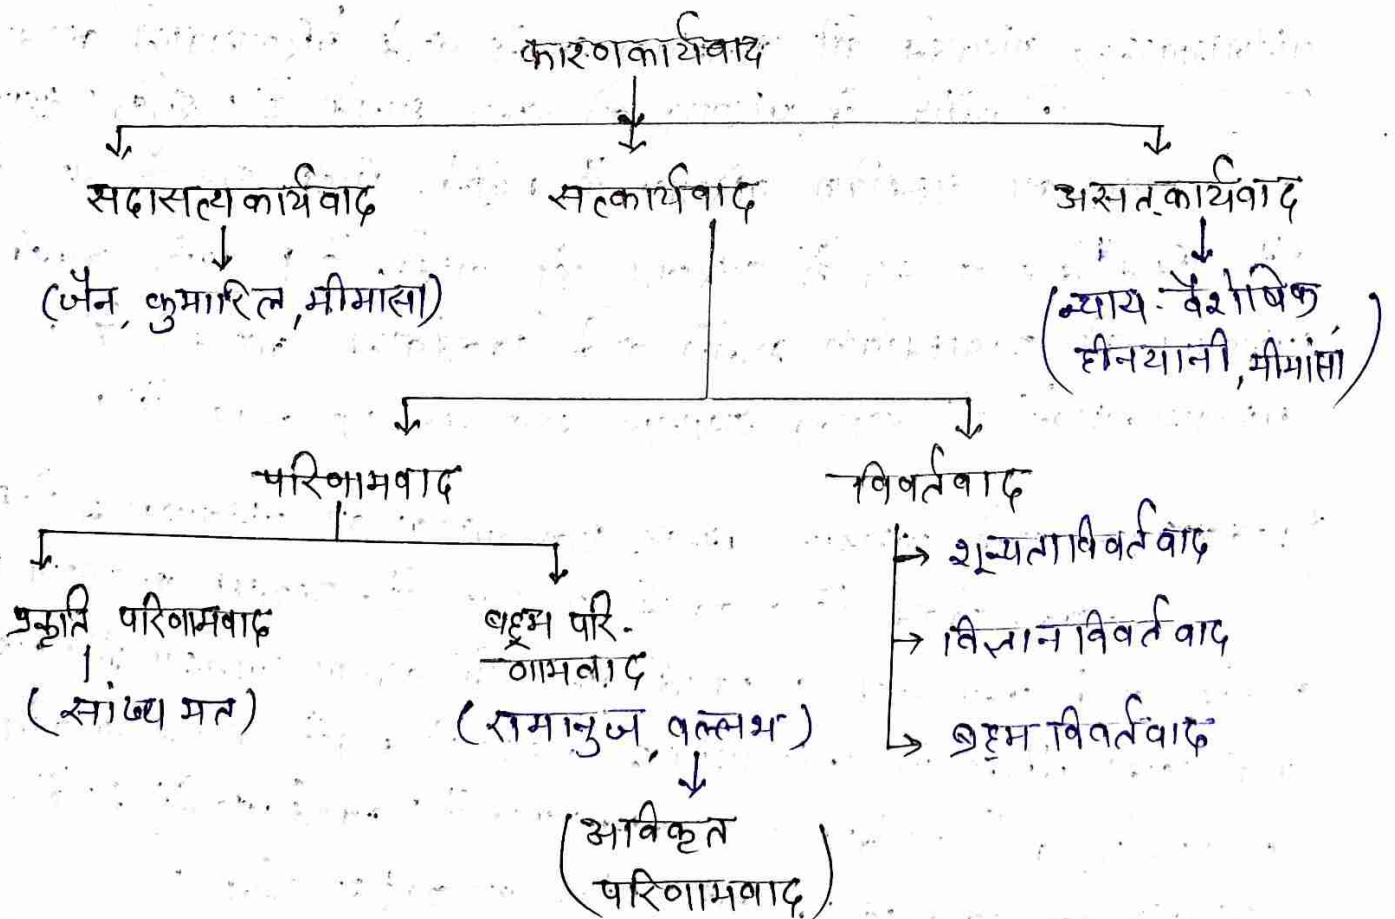 कारणकार्यवाद
सदासत्यकार्यवाद
सत्कार्यवाद
असत्.कार्यवाद
(जैन, कुमारिल, मीमांसा)
(न्याय-वैशेषिक
हीनयानी, मीमांसा)
परिणामवाद
विवर्तवाद
प्रकृति परिणामवाद
(सांख्य मत)
ब्रह्म परि-
णामवाद
(रामानुज, वल्लभ)
(अविकृत
परिणामवाद)
→ शून्यताविवर्तवाद
→ विज्ञानविवर्तवाद
→ ब्रह्म विवर्तवाद